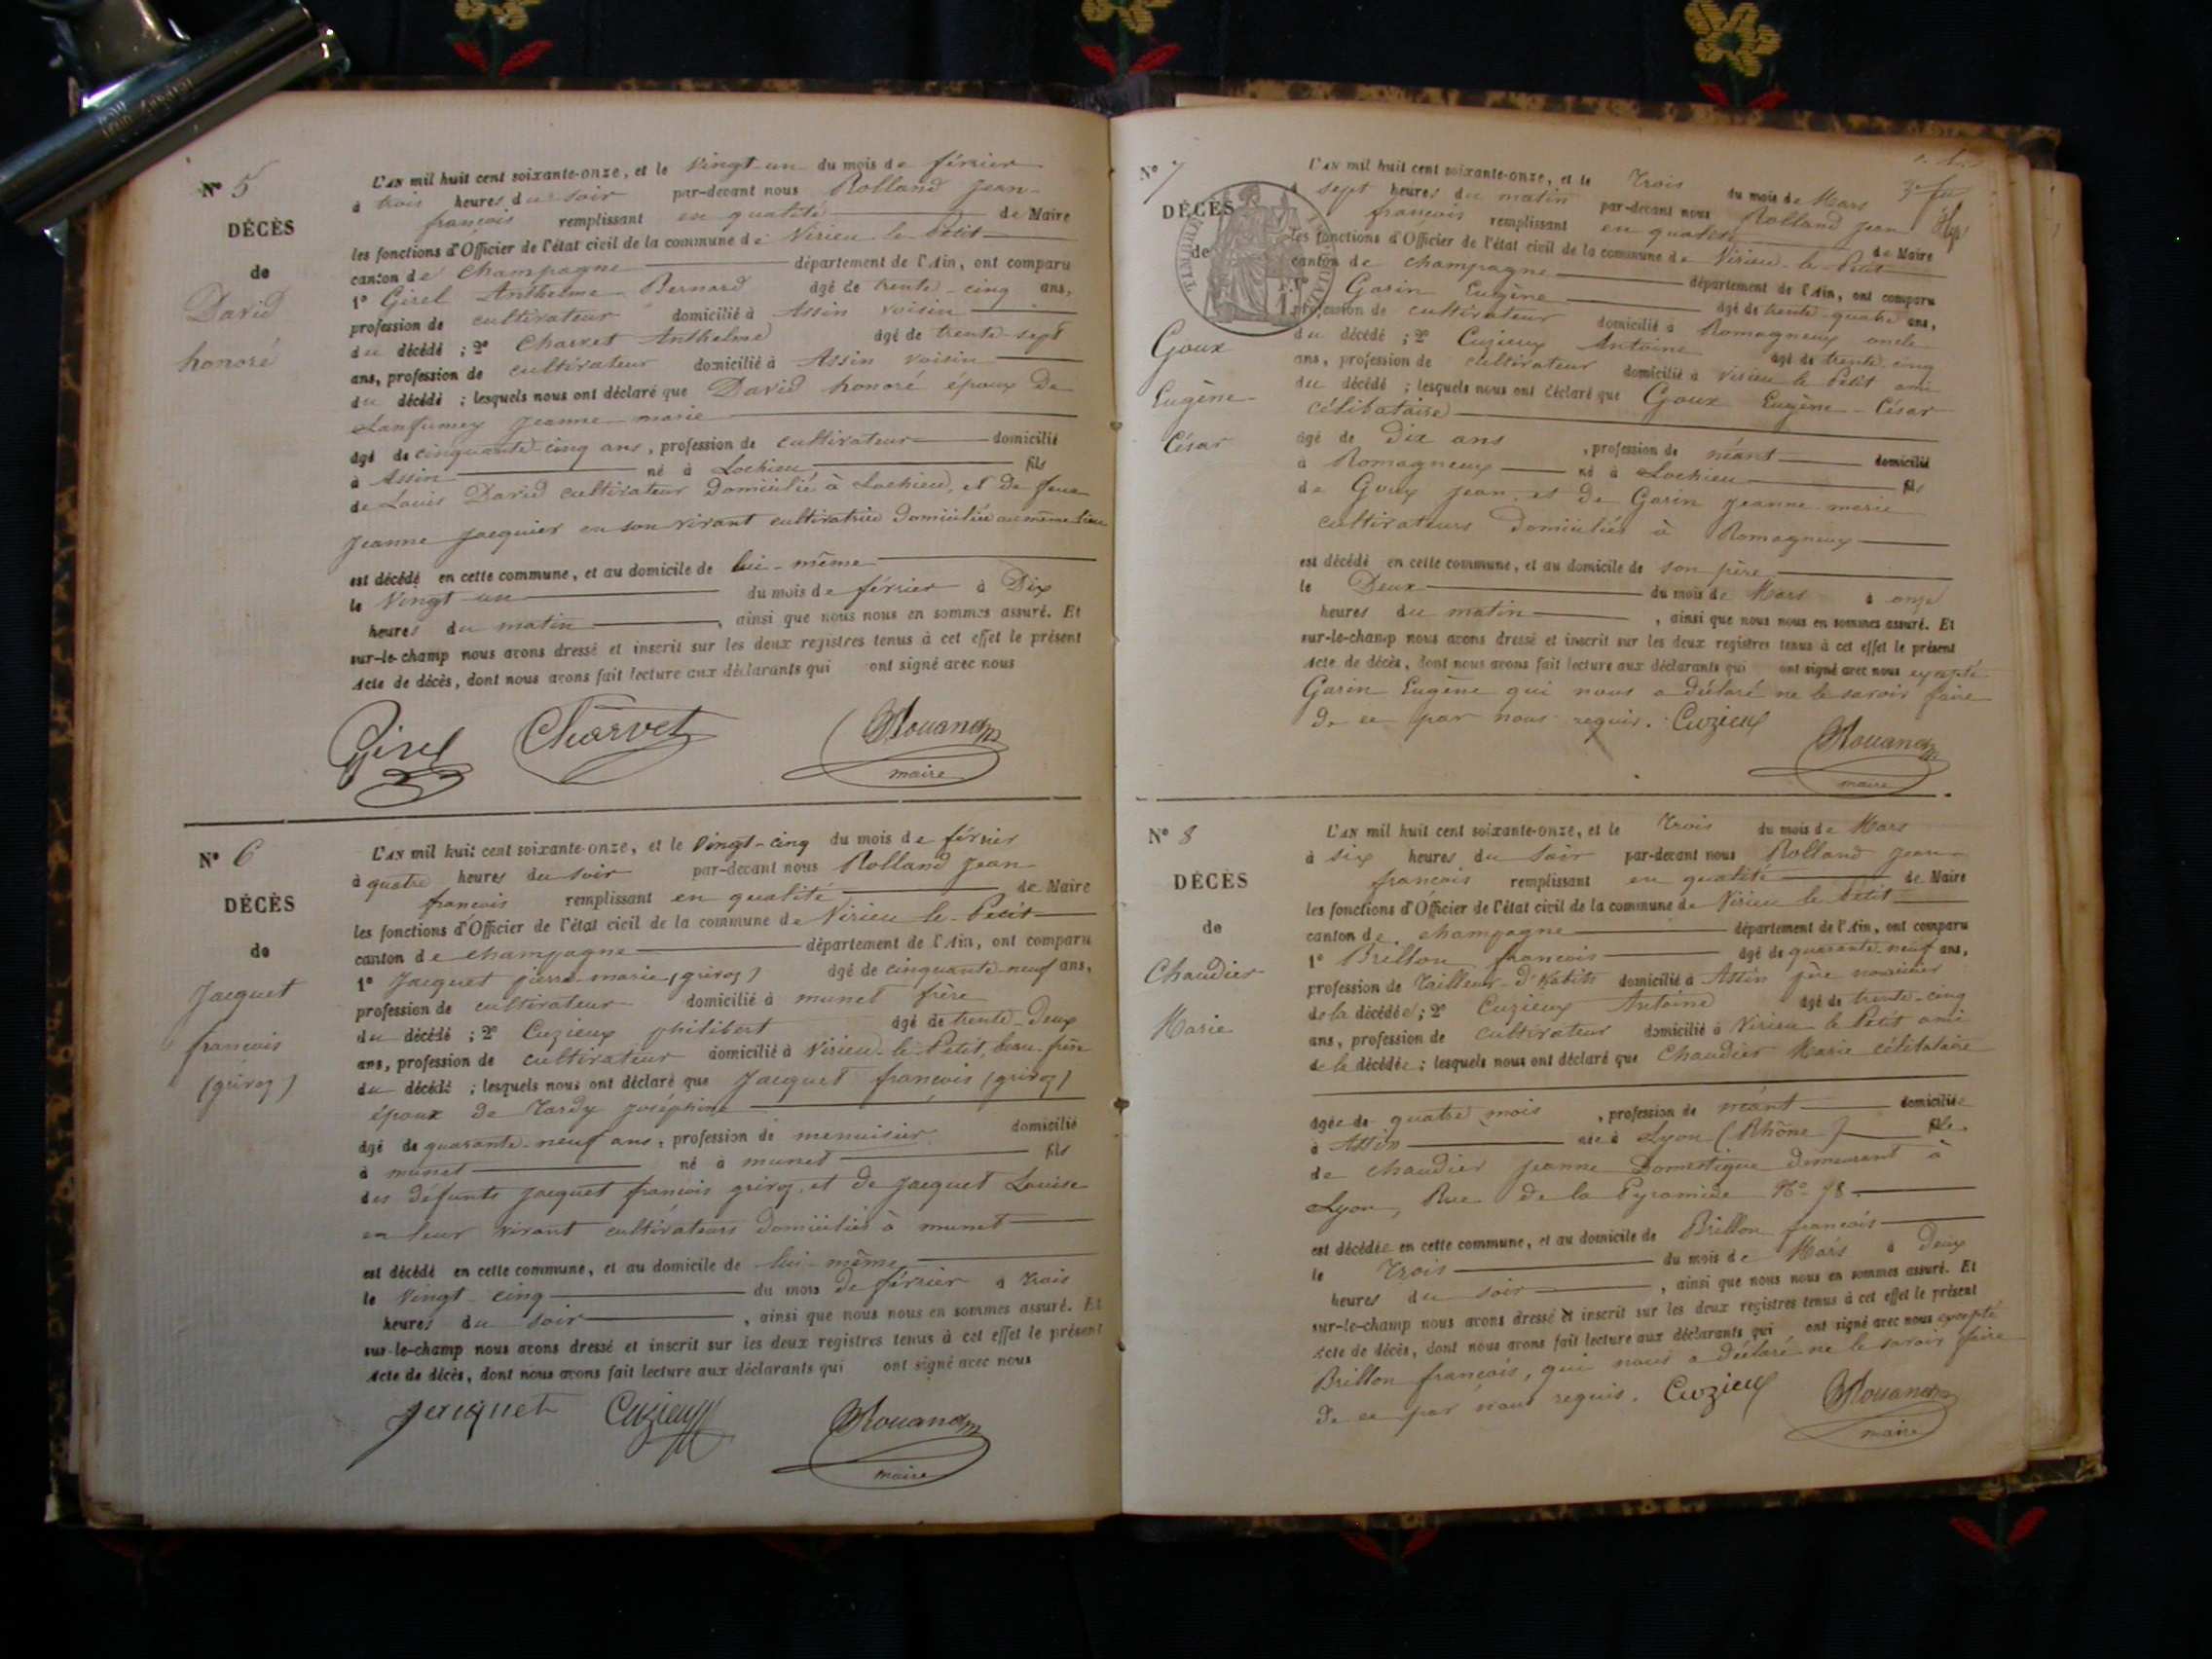 N° 5
DÉCÈS
de
David
honoré
L'AN mil huit cent soixante-onze, et le vingt un du mois de février
à trois heures du soir par-devant nous Rolland jean-
françois remplissant en qualité de Maire
les fonctions d'Officier de l'état civil de la commune de Virieu le Petit
canton de Champagne département de l'Ain, ont comparu
1° Girel Anthelme Bernard âgé de trente-cinq ans,
profession de cultivateur domicilié à Assin voisin
du décédé ; 2° Charvet Anthelme âgé de trente-sept
ans, profession de cultivateur domicilié à Assin voisin
du décédé ; lesquels nous ont déclaré que David honoré époux de
Lanfumey jeanne marie
âgé de cinquante cinq ans, profession de cultivateur domicilié
à Assin né à Lochieu fils
de Louis David cultivateur domicilié à Lochieu, et de feue
jeanne jacquier en son vivant cultivatrice domiciliée au même lieu
est décédé en cette commune, et au domicile de lui-même
le vingt-un du mois de février à Dix
heures du matin , ainsi que nous nous en sommes assuré. Et
sur-le-champ nous avons dressé et inscrit sur les deux registres tenus à cet effet le présent
Acte de décès, dont nous avons fait lecture aux déclarants qui ont signé avec nous
Girel Charvet
maire
N° 6
DÉCÈS
de
Jacquet
françois
(grivoz)
L'AN mil huit cent soixante-onze, et le vingt-cinq du mois de février
à quatre heures du soir par-devant nous Rolland jean-
françois remplissant en qualité de Maire
les fonctions d'Officier de l'état civil de la commune de Virieu le-Petit
canton de champagne département de l'Ain, ont comparu
1° Jacquet pierre-marie (grivoz) âgé de cinquante-neuf ans,
profession de cultivateur domicilié à munet frère
du décédé ; 2° Cuzieux philibert âgé de trente-deux
ans, profession de cultivateur domicilié à Virieu-le-Petit, beau-frère
du décédé ; lesquels nous ont déclaré que Jacquet françois (grivoz)
époux de Tardy joséphine
âgé de quarante-neuf ans, profession de menuisier domicilié
à munet né à munet fils
des défunts jacquet françois grivoz, et de jacquet Louise
en leur vivant cultivateurs domiciliés à munet
est décédé en cette commune, et au domicile de lui-même
le vingt-cinq du mois de février à trois
heures du soir , ainsi que nous nous en sommes assuré. Et
sur-le-champ nous avons dressé et inscrit sur les deux registres tenus à cet effet le présent
Acte de décès, dont nous avons fait lecture aux déclarants qui ont signé avec nous
jacquet Cuzieux
maire
N° 7
DÉCÈS
de
Goux
Eugène
César
L'AN mil huit cent soixante-onze, et le trois du mois de Mars
à sept heures du matin par-devant nous Rolland jean
françois remplissant en qualité de Maire
les fonctions d'Officier de l'état civil de la commune de Virieu-le-Petit
canton de champagne département de l'Ain, ont comparu
1° Garin Eugène âgé de trente-quatre ans,
profession de cultivateur domicilié à Romagneux oncle
du décédé ; 2° Cuzieux Antoine âgé de trente-cinq
ans, profession de cultivateur domicilié à Virieu le Petit ami
du décédé ; lesquels nous ont déclaré que Goux Eugène-César
célibataire
âgé de Dix ans , profession de néant domicilié
à Romagneux né à Lochieu fils
de Goux jean, et de Garin jeanne-marie
cultivateurs domiciliés à Romagneux
est décédé en cette commune, et au domicile de son père
le Deux du mois de Mars à onze
heures du matin , ainsi que nous nous en sommes assuré. Et
sur-le-champ nous avons dressé et inscrit sur les deux registres tenus à cet effet le présent
Acte de décès, dont nous avons fait lecture aux déclarants qui ont signé avec nous excepté
Garin Eugène qui nous a déclaré ne le savoir faire
de ce par nous requis. Cuzieux
maire
N° 8
DÉCÈS
de
Chaudier
Marie
L'AN mil huit cent soixante-onze, et le trois du mois de Mars
à six heures du soir par-devant nous Rolland jean-
françois remplissant en qualité de Maire
les fonctions d'Officier de l'état civil de la commune de Virieu le Petit
canton de champagne département de l'Ain, ont comparu
1° Brillon françois âgé de quarante-neuf ans,
profession de tailleur-d'habits domicilié à Assin père nourricier
de la décédée ; 2° Cuzieux Antoine âgé de trente-cinq
ans, profession de cultivateur domicilié à Virieu le Petit ami
de la décédée ; lesquels nous ont déclaré que Chaudier Marie célibataire
âgée de quatre mois , profession de néant domiciliée
à Assin née à Lyon (Rhône) fille
de chaudier jeanne Domestique demeurant à
Lyon, Rue de la Pyramide N° 78
est décédée en cette commune, et au domicile de Brillon françois
le trois du mois de Mars à deux
heures du soir , ainsi que nous nous en sommes assuré. Et
sur-le-champ nous avons dressé et inscrit sur les deux registres tenus à cet effet le présent
Acte de décès, dont nous avons fait lecture aux déclarants qui ont signé avec nous excepté
Brillon françois, qui nous a déclaré ne le savoir faire
de ce par nous requis. Cuzieux
maire